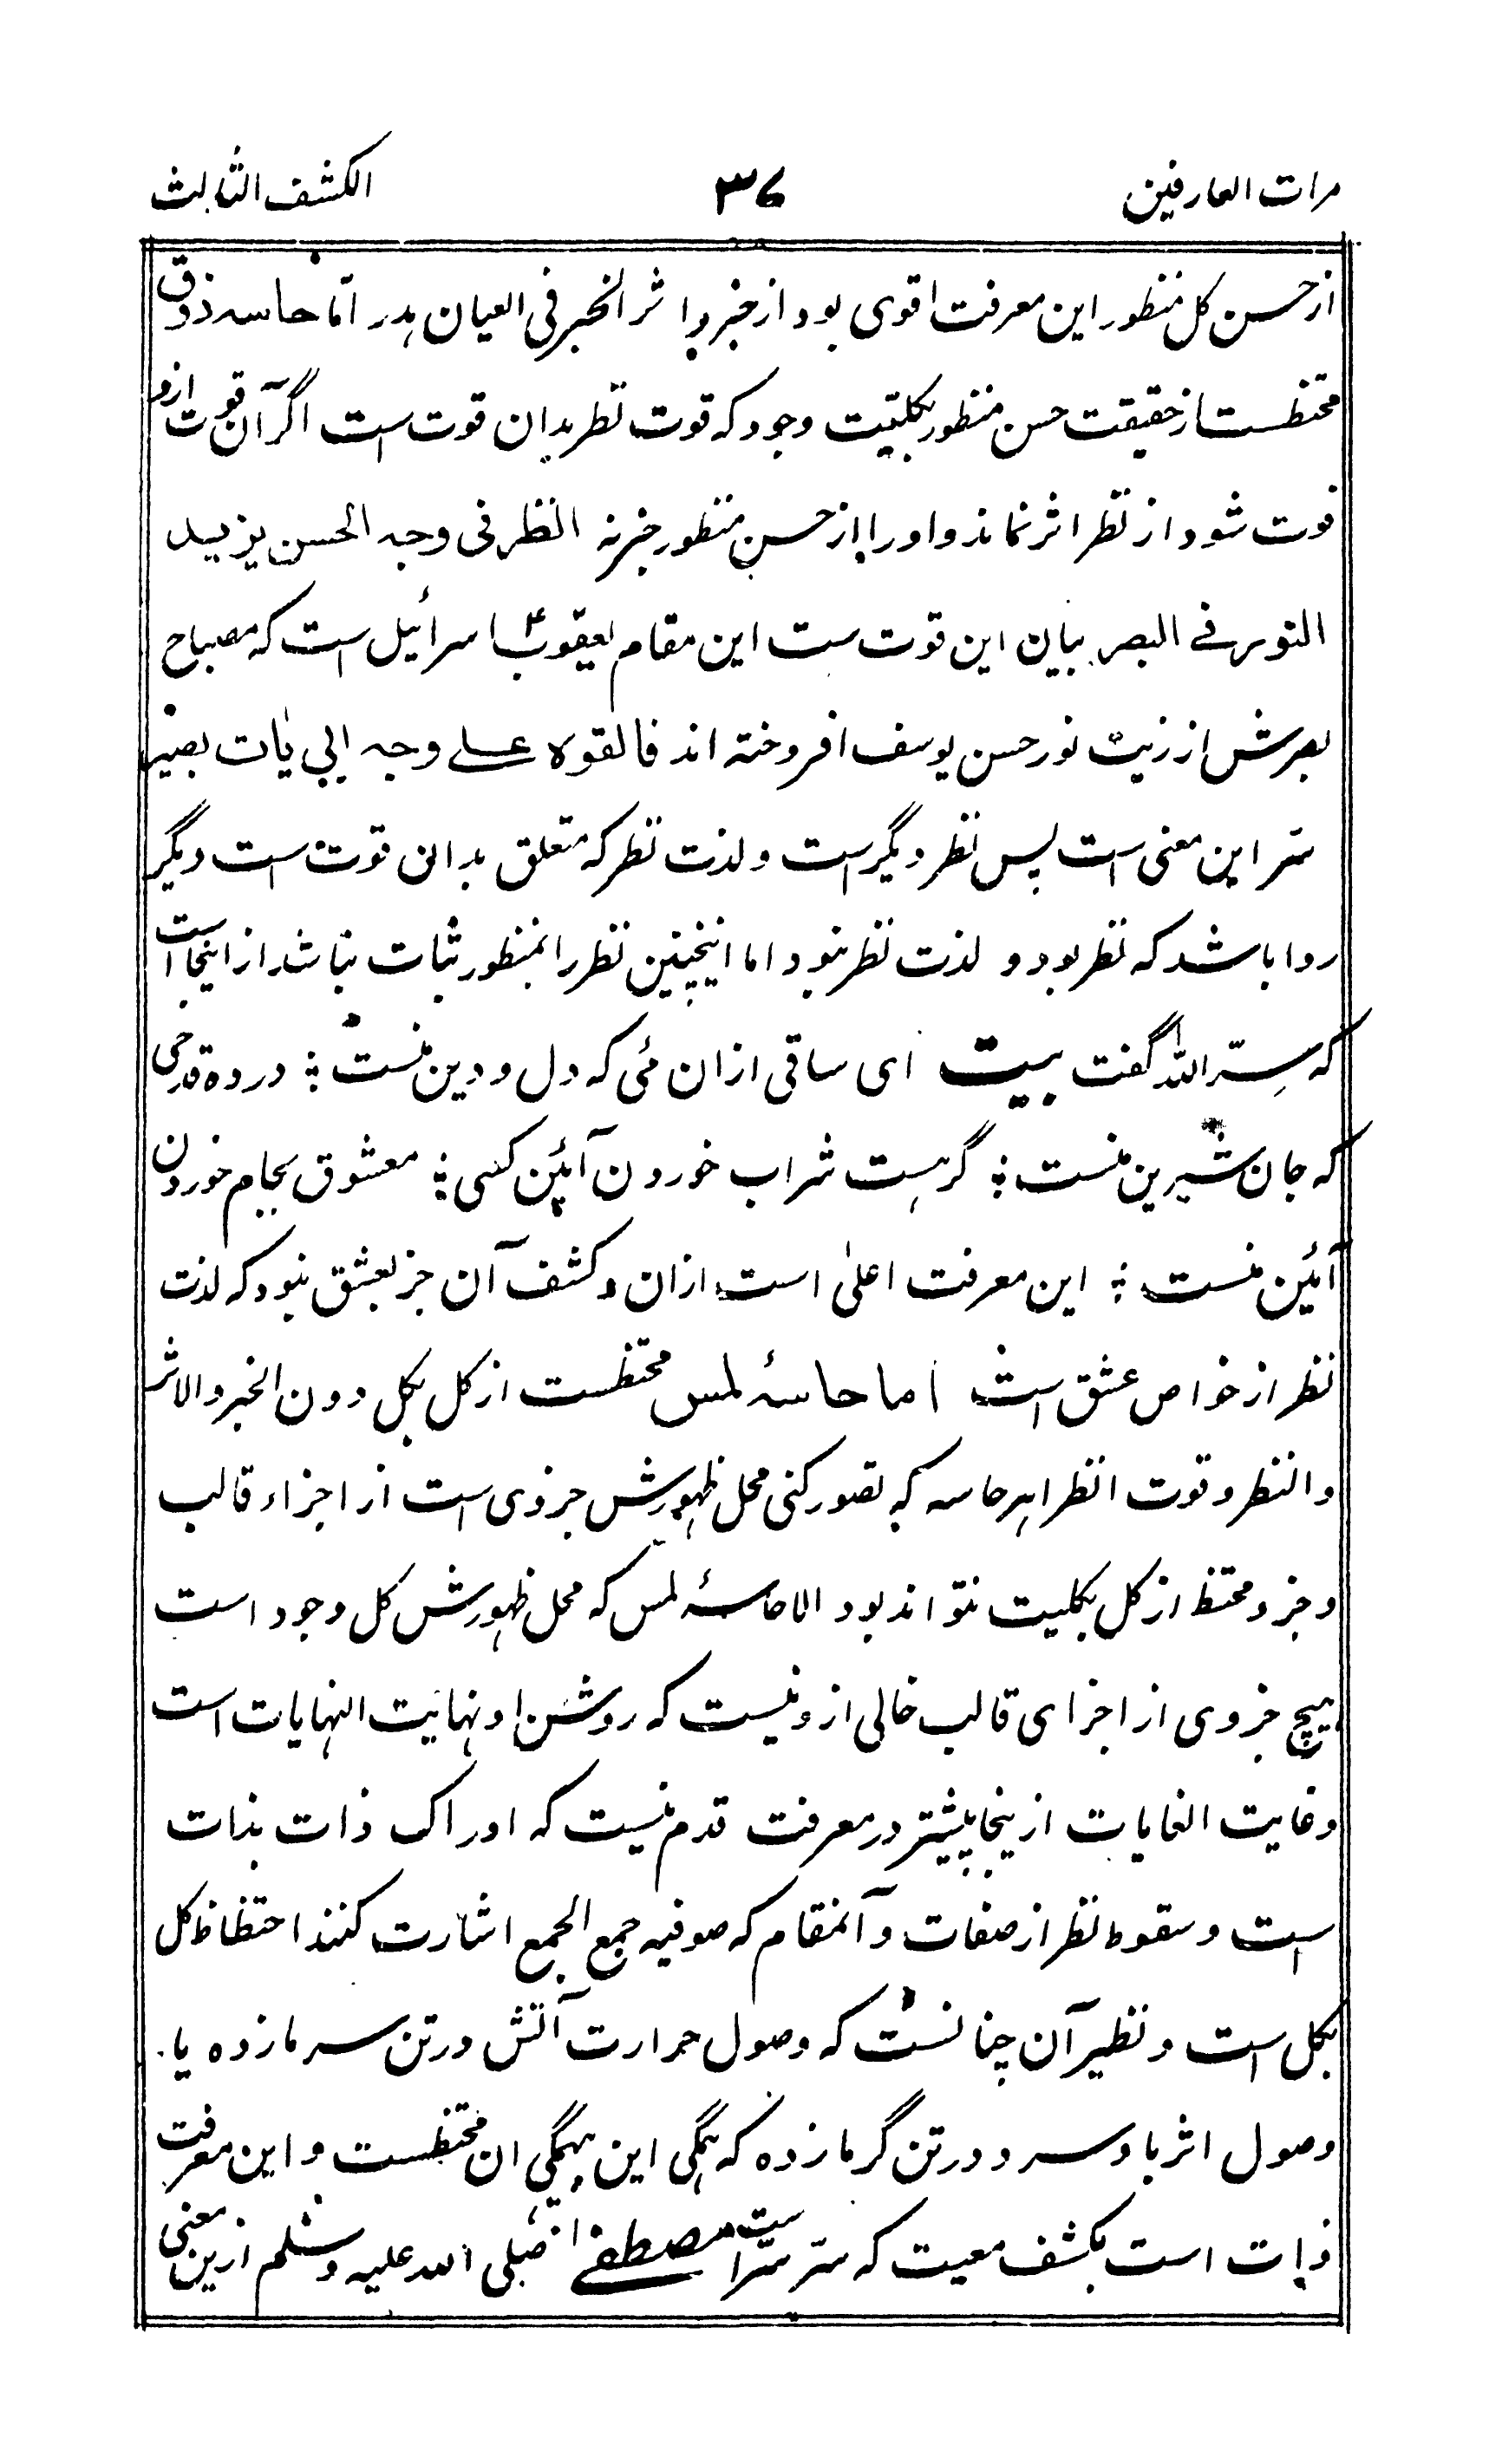 مرات العارفین ۳۷ الکشف الثالث
از حسن کل منظور این معرفت اقوی بود از خبر و اثر الخبر فی العیان هدر اتما حاسه ذوق
محتظست از حقیقت حسن منظور بکلیّت وجود که قوت نظر بدان قوت است اگر آن قوت ازو
فوت شود از نظر اثر نماند و او را از حسن منظور خبر نه النظر فی وجه الحسن یزید
النور فے البصر بیان این قوت ست این مقام یعقوبؑ اسرائیل است که مصباح
بصرش از زیت نور حسن یوسف افروخته اند فالقوه علے وجه ابی یأت بصیرا
سّر این معنی است پس نظر دیگر است و لذت نظر که متعلق بدان قوت است دیگر
روا باشد که نظر بود و لذت نظر نبود اما اینچنین نظر را بمنظور ثبات نباشد از اینجا است
که سرّ الله گفت بیت ای ساقی ازان مئی که دل و دین منست ؛ در ده قدحی
که جان شیرین منست ؛ گر هست شراب خوردن آئین کسی ؛ معشوق بجام خوردن
آئین منست ؛ این معرفت اعلیٰ است ازان و کشف آن جز بعشق نبود که لذت
نظر از خواص عشق است اما حاسهٔ لمس محتظست از کل بکل دون الخبر و الاثر
و النظر و قوت النظر هر حاسه که تصور کنی محل ظهورش جزوی است از اجزاء قالب
و جزو محتظ از کل بکلیت نتواند بود الا حاسهٔ لمس که محل ظهورش کل وجود است
هیچ جزوی از اجزای قالب خالی ازو نیست که روشن او نهایت النهایات است
و غایت الغایات از ینجا پیشتر در معرفت قدم نیست که ادراک ذات بذات
است و سقوط نظر از صفات و آنمقام که صوفیه جمع الجمع اشارت کنند احتظاظ کل
بکل است و نظیر آن چنانست که وصول حرارت آتش در تن سرمازده یا
وصول اثر باد سرد در تن گرمازده که همگی این بهمگی ان محتظست و این معرفت
ذات است بکشف معیت که سّر سّر است مصطفےٰ صلی الله علیه وسلم ازین معنی